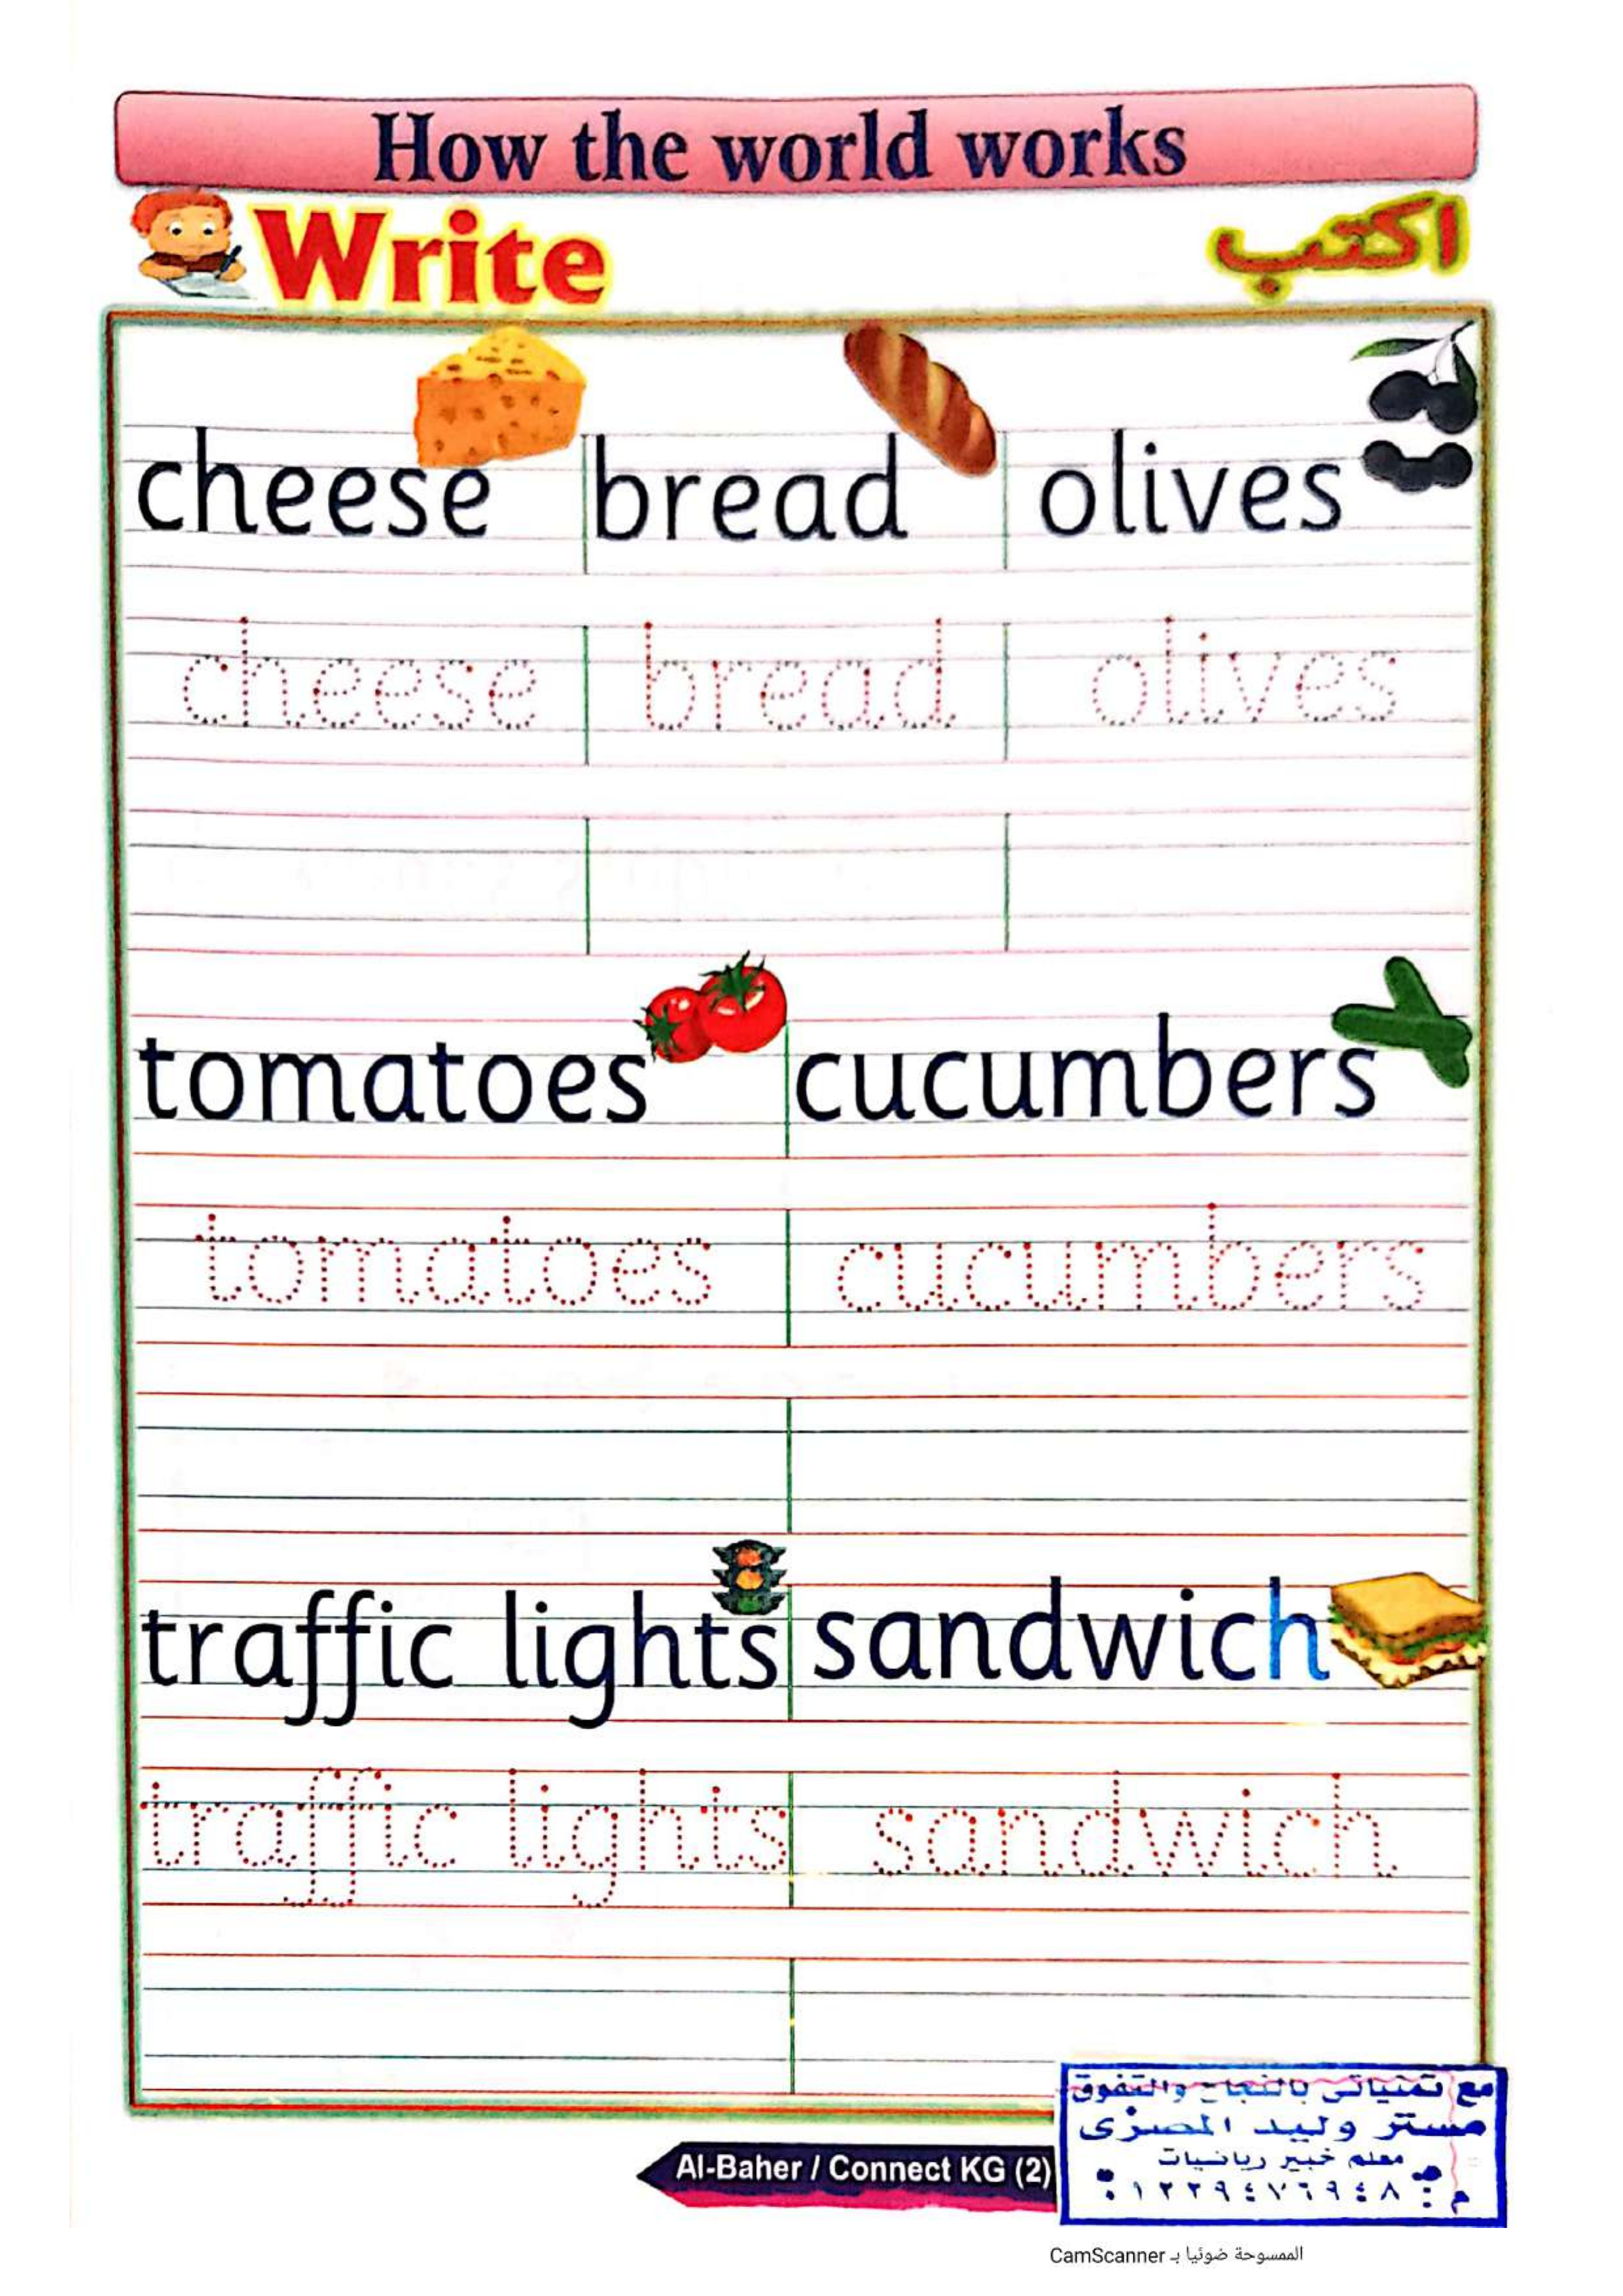 How the world works
Write اكتب
cheese bread olives
cheese bread olives
tomatoes cucumbers
tomatoes cucumbers
traffic lights sandwich
traffic lights sandwich
مع تمنياتى بالنجاح والتفوق
مستر وليد المصرى
معلم خبير رياضيات
م : ٠١٢٢٩٤٧٦٩٤٨
Al-Baher / Connect KG (2)
الممسوحة ضوئيا بـ CamScanner